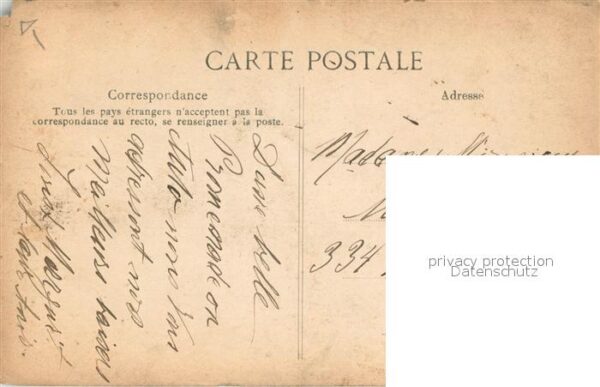 CARTE POSTALE
Correspondance
Tous les pays étrangers n'acceptent pas la
correspondance au recto, se renseigner à la poste.
Adresse
D'une belle
Promenade en
Auto nous vous
adressons nos
Meilleurs baisers
Louis
et
Madame
334
privacy protection
Datenschutz